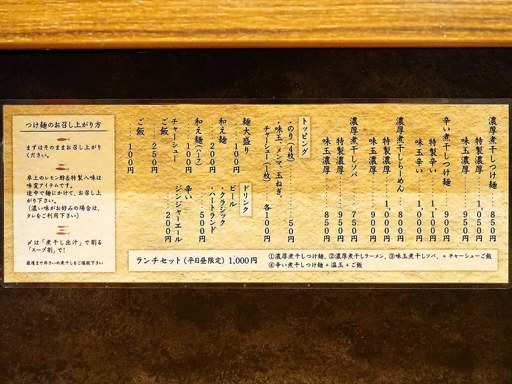 濃厚煮干しつけ麺…850円
特製濃厚…1,050円
味玉濃厚…950円
辛い煮干しつけ麺…900円
特製辛い…1,100円
味玉辛い…1,000円
濃厚煮干しらーめん…800円
特製濃厚…1,000円
味玉濃厚…900円
濃厚煮干しソバ…750円
特製濃厚…950円
味玉濃厚…850円
トッピング
・のり(4枚)…50円
・味玉、メンマ、玉ねぎ、
チャーシュー(1枚)…各100円
麺大盛り…100円
和え麺…200円
和え麺(ハーフ)…100円
チャーシューご飯…250円
ご飯…100円
ドリンク
ビール
・クラシック
・ハートランド
500円
辛い
ジンジャーエール
200円
ランチセット(平日昼限定)1,000円
①濃厚煮干しつけ麺、②濃厚煮干しラーメン、③味玉煮干しソバ、+チャーシューご飯
④辛い煮干しつけ麺+温玉+ご飯
つけ麺のお召し上がり方
まずはそのままお召し上がり
ください。
卓上のレモン酢&特製八味は
味変アイテムです。
途中で麺にかけて、お召し上
がり下さい。
(濃い味がお好みの場合は、
タレをご利用下さい)
〆は「煮干し出汁」で割る
「スープ割」で!
最後まで辛さいの煮干しをご堪能下さい